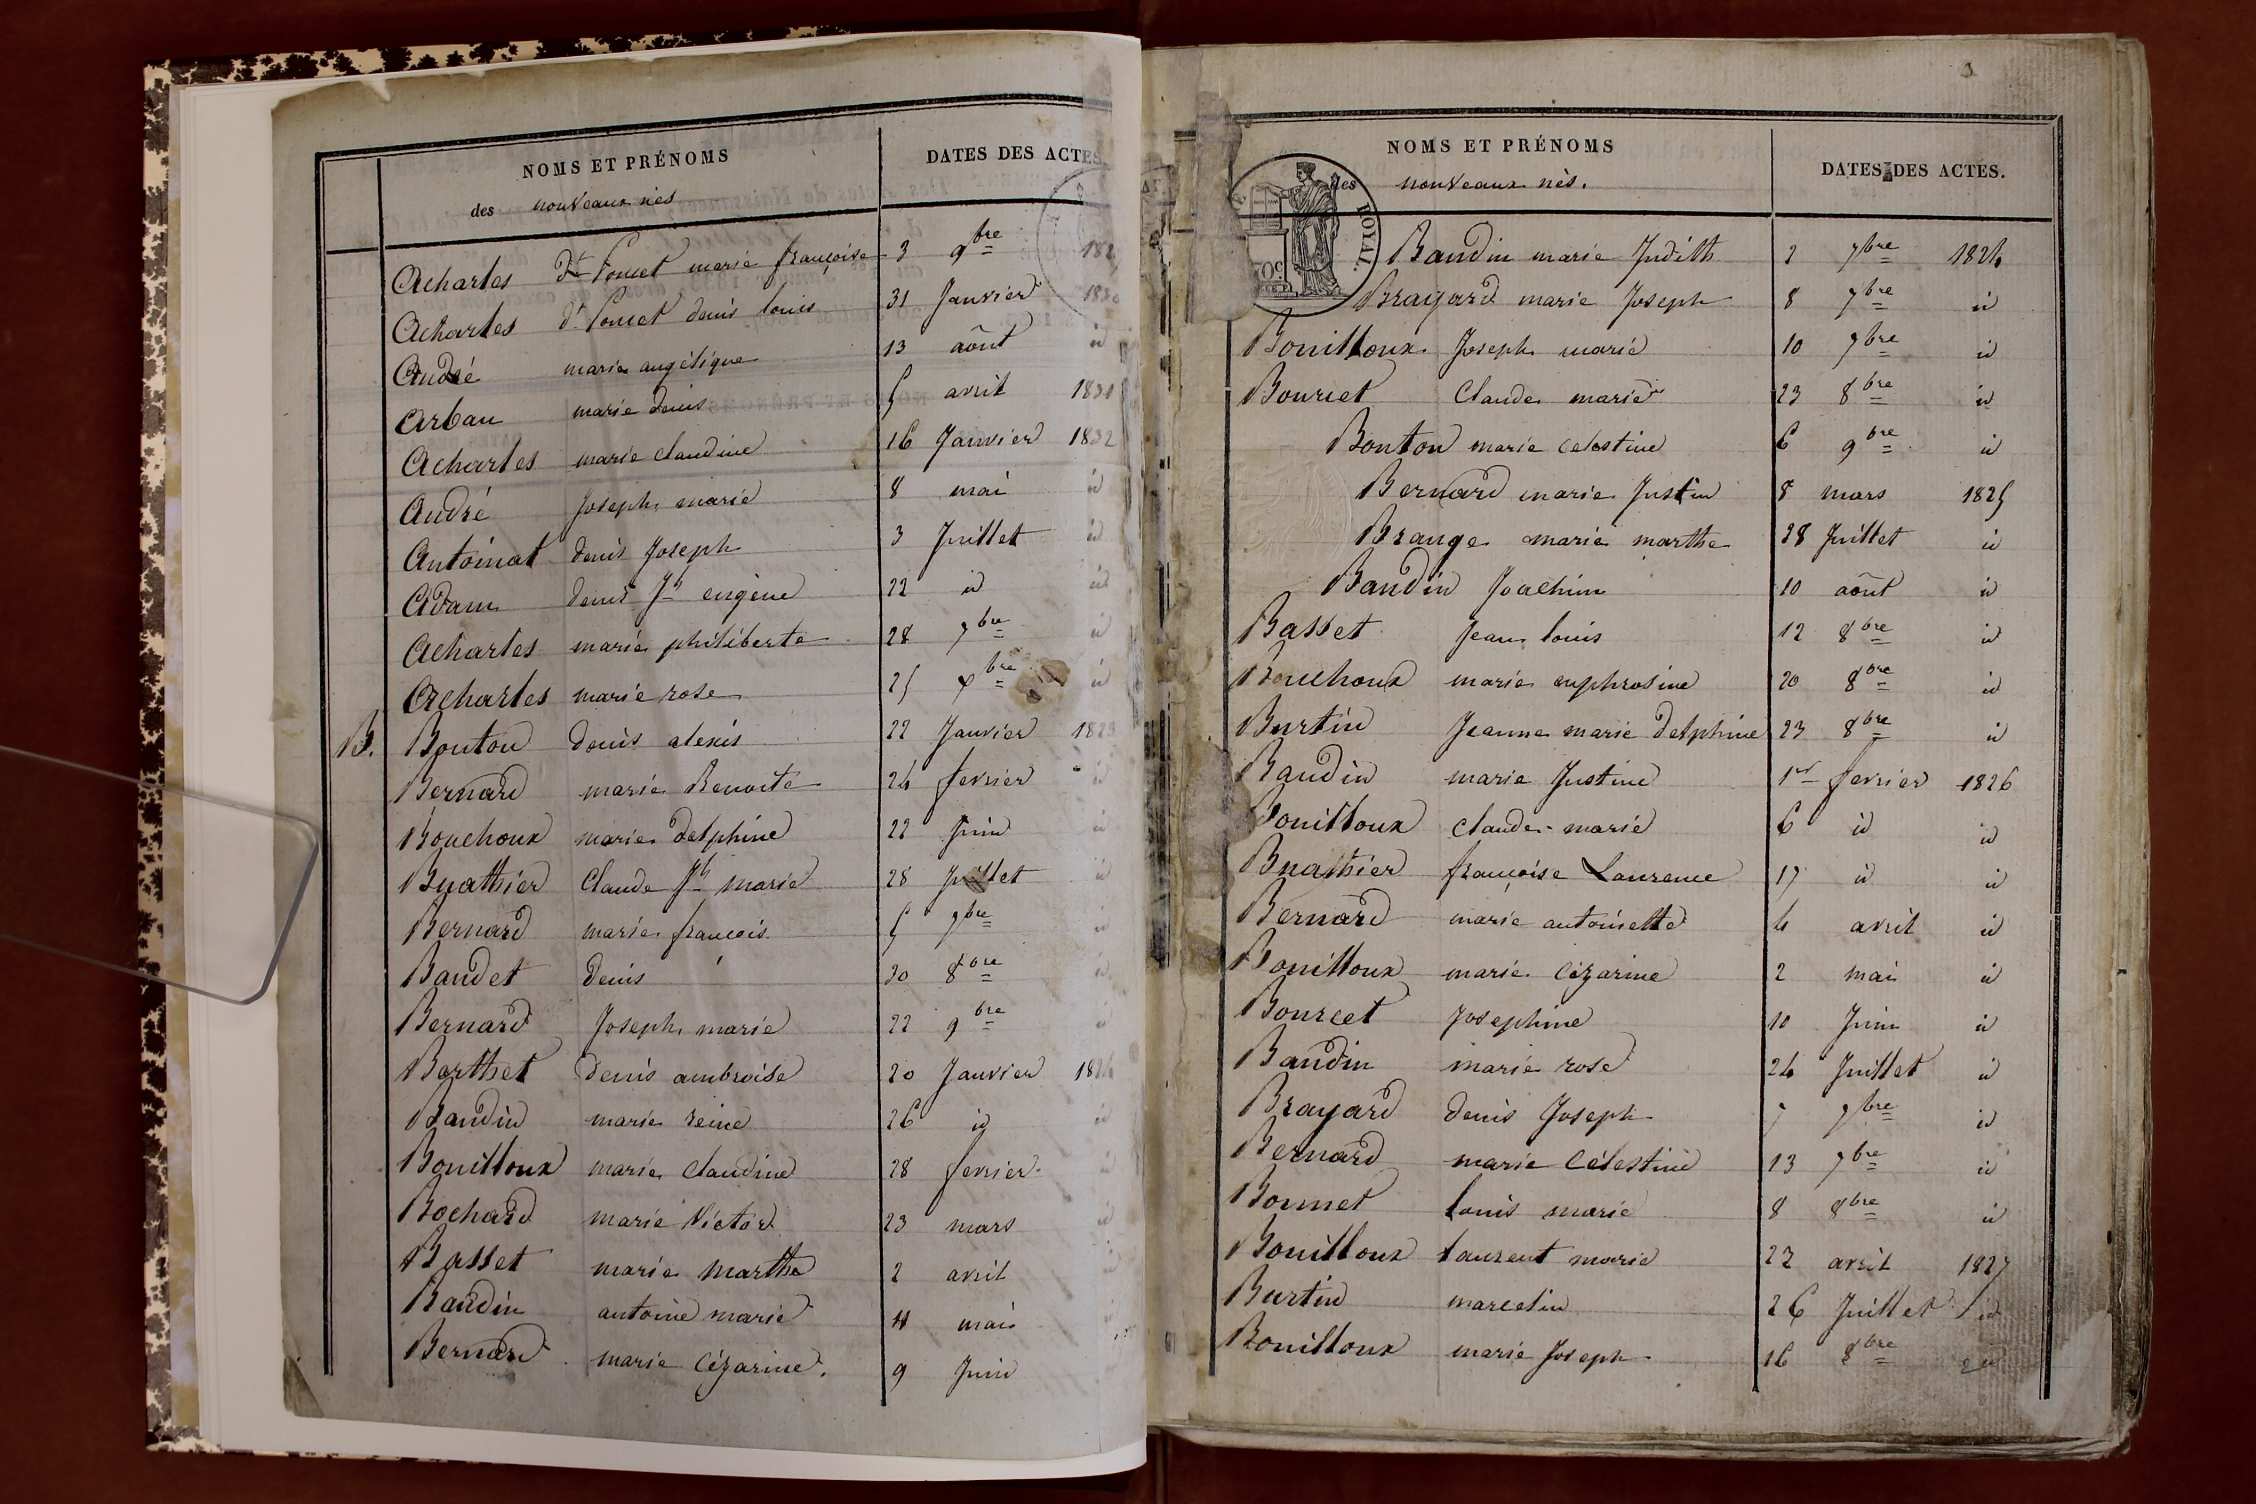 NOMS ET PRÉNOMS
des nouveaux nés
DATES DES ACTES
Acharles dt Poncet marie françoise 3 9bre 182
Acharles dt Poncet denis louis 31 Janvier 1830
André marie angélique 13 août id
Arban marie denis 5 avril 1831
Acharles marie claudine 16 Janvier 1832
André Joseph marie 8 mai id
Antoinat denis Joseph 3 Juillet id
Adam denis Jh eugène 22 id id
Acharles marie philiberte 28 7bre id
Acharles marie rose 25 Xbre id
B. Bouton denis alexis 22 Janvier 1823
Bernard marie Benoite 24 fevrier id
Bouchoux marie delphine 22 Juin id
Buathier Claude Jh marie 28 Juillet id
Bernard marie françois 5 7bre id
Baudet denis 30 8bre id
Bernard Joseph marie 22 9bre id
Berthet denis ambroise 20 Janvier 1824
Baudin marie reine 26 id id
Bouilloux marie claudine 28 fevrier
Bochard marie Victor 23 mars id
Basset marie Marthe 2 avril
Baudin antoine marie 11 mai
Bernard marie Cézarine. 9 Juin
3
NOMS ET PRÉNOMS
des nouveaux nés.
DATES DES ACTES.
ROYAL.
Baudin marie Judith 2 7bre 1824
Brayard marie Joseph 8 7bre id
Bouilloux Joseph marie 10 7bre id
Bourcet Claude marie 23 8bre id
Bouton marie celestine 6 9bre id
Bernard marie Justin 8 mars 1825
Brange marie marthe 28 Juillet id
Baudin Joachim 10 août id
Basset Jean louis 12 8bre id
Bouchoux marie euphrosine 20 8bre id
Burtin Jeanne marie delphine 23 8bre id
Baudin marie Justine 1er fevrier 1826
Bouilloux claude marie 6 id id
Buathier françoise Laurence 17 id id
Bernard marie antoinette 4 avril id
Bouilloux marie Cézarine 2 mai id
Bourcet Josephine 10 Juin id
Baudin marie rose 24 Juillet id
Brayard denis Joseph 7 7bre id
Bernard marie Célestine 13 7bre id
Bonnet louis marie 8 8bre id
Bouilloux laurent marie 22 avril 1827
Burtin marcelin 26 Juillet id
Bouilloux marie Joseph 16 8bre id